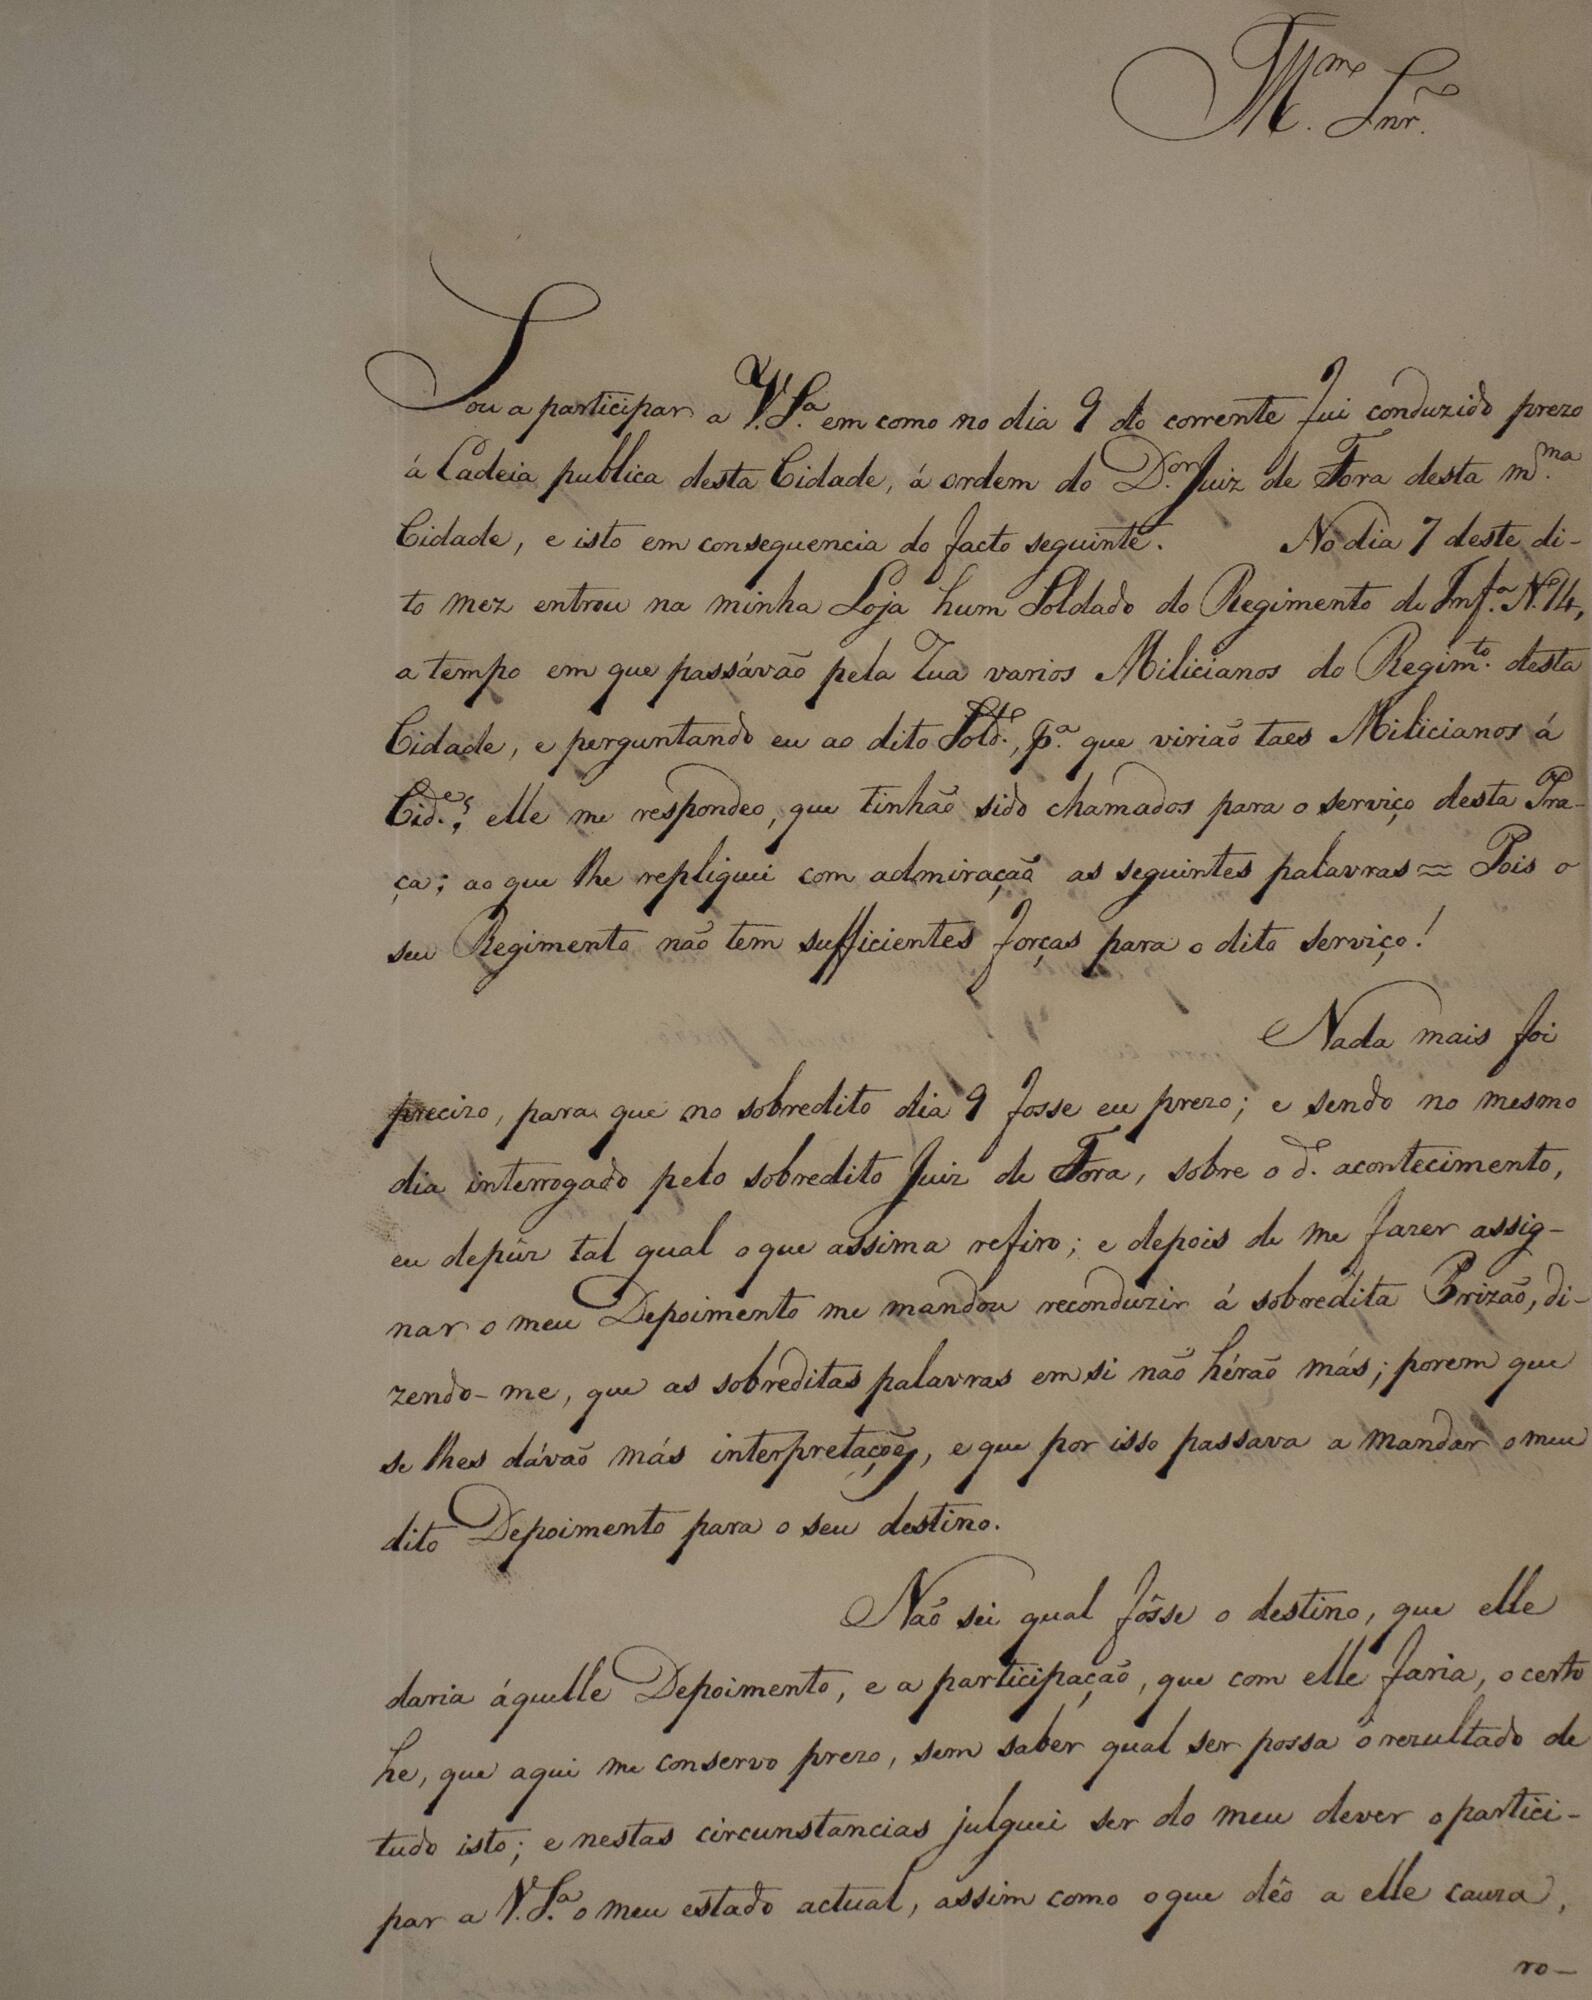 Illmo. Snr.
Sou a participar a V. Sa. em como no dia 9 do corrente fui conduzido prezo
á Cadeia publica desta Cidade, á ordem do Dor. Juiz de Fora desta mma.
Cidade, e isto em consequencia do facto seguinte. No dia 7 deste di-
to mez entrou na minha Loja hum Soldado do Regimento de Infa. No. 14,
a tempo em que passávão pela Rua varios Milicianos do Regimto. desta
Cidade, e perguntando eu ao dito Soldo., pa. que virião taes Milicianos á
Cide.? elle me respondeo, que tinhão sido chamados para o serviço desta Pra-
ça; ao que lhe repliquei com admiração as seguintes palavras = Pois o
seu Regimento não tem sufficientes forças para o dito serviço!
Nada mais foi
precizo, para que no sobredito dia 9 fosse eu prezo; e sendo no mesmo
dia interrogado pelo sobredito Juiz de Fora, sobre o do. acontecimento,
eu depûz tal qual o que assima refiro; e depois de me fazer assig-
nar o meu Depoimento me mandou reconduzir á sobredita Prizão, di-
zendo-me, que as sobreditas palavras em si não hérão más; porem que
se lhes dávão más interpretações, e que por isso passava a mandar o meu
dito Depoimento para o seu destino.
Não sei qual fôsse o destino, que elle
daria áquelle Depoimento, e a participação, que com elle faria, o certo
he, que aqui me conservo prezo, sem saber qual ser possa o rezultado de
tudo isto; e nestas circunstancias julguei ser do meu dever o partici-
par a V. Sa. o meu estado actual, assim como o que dêo a elle cauza,
ro-